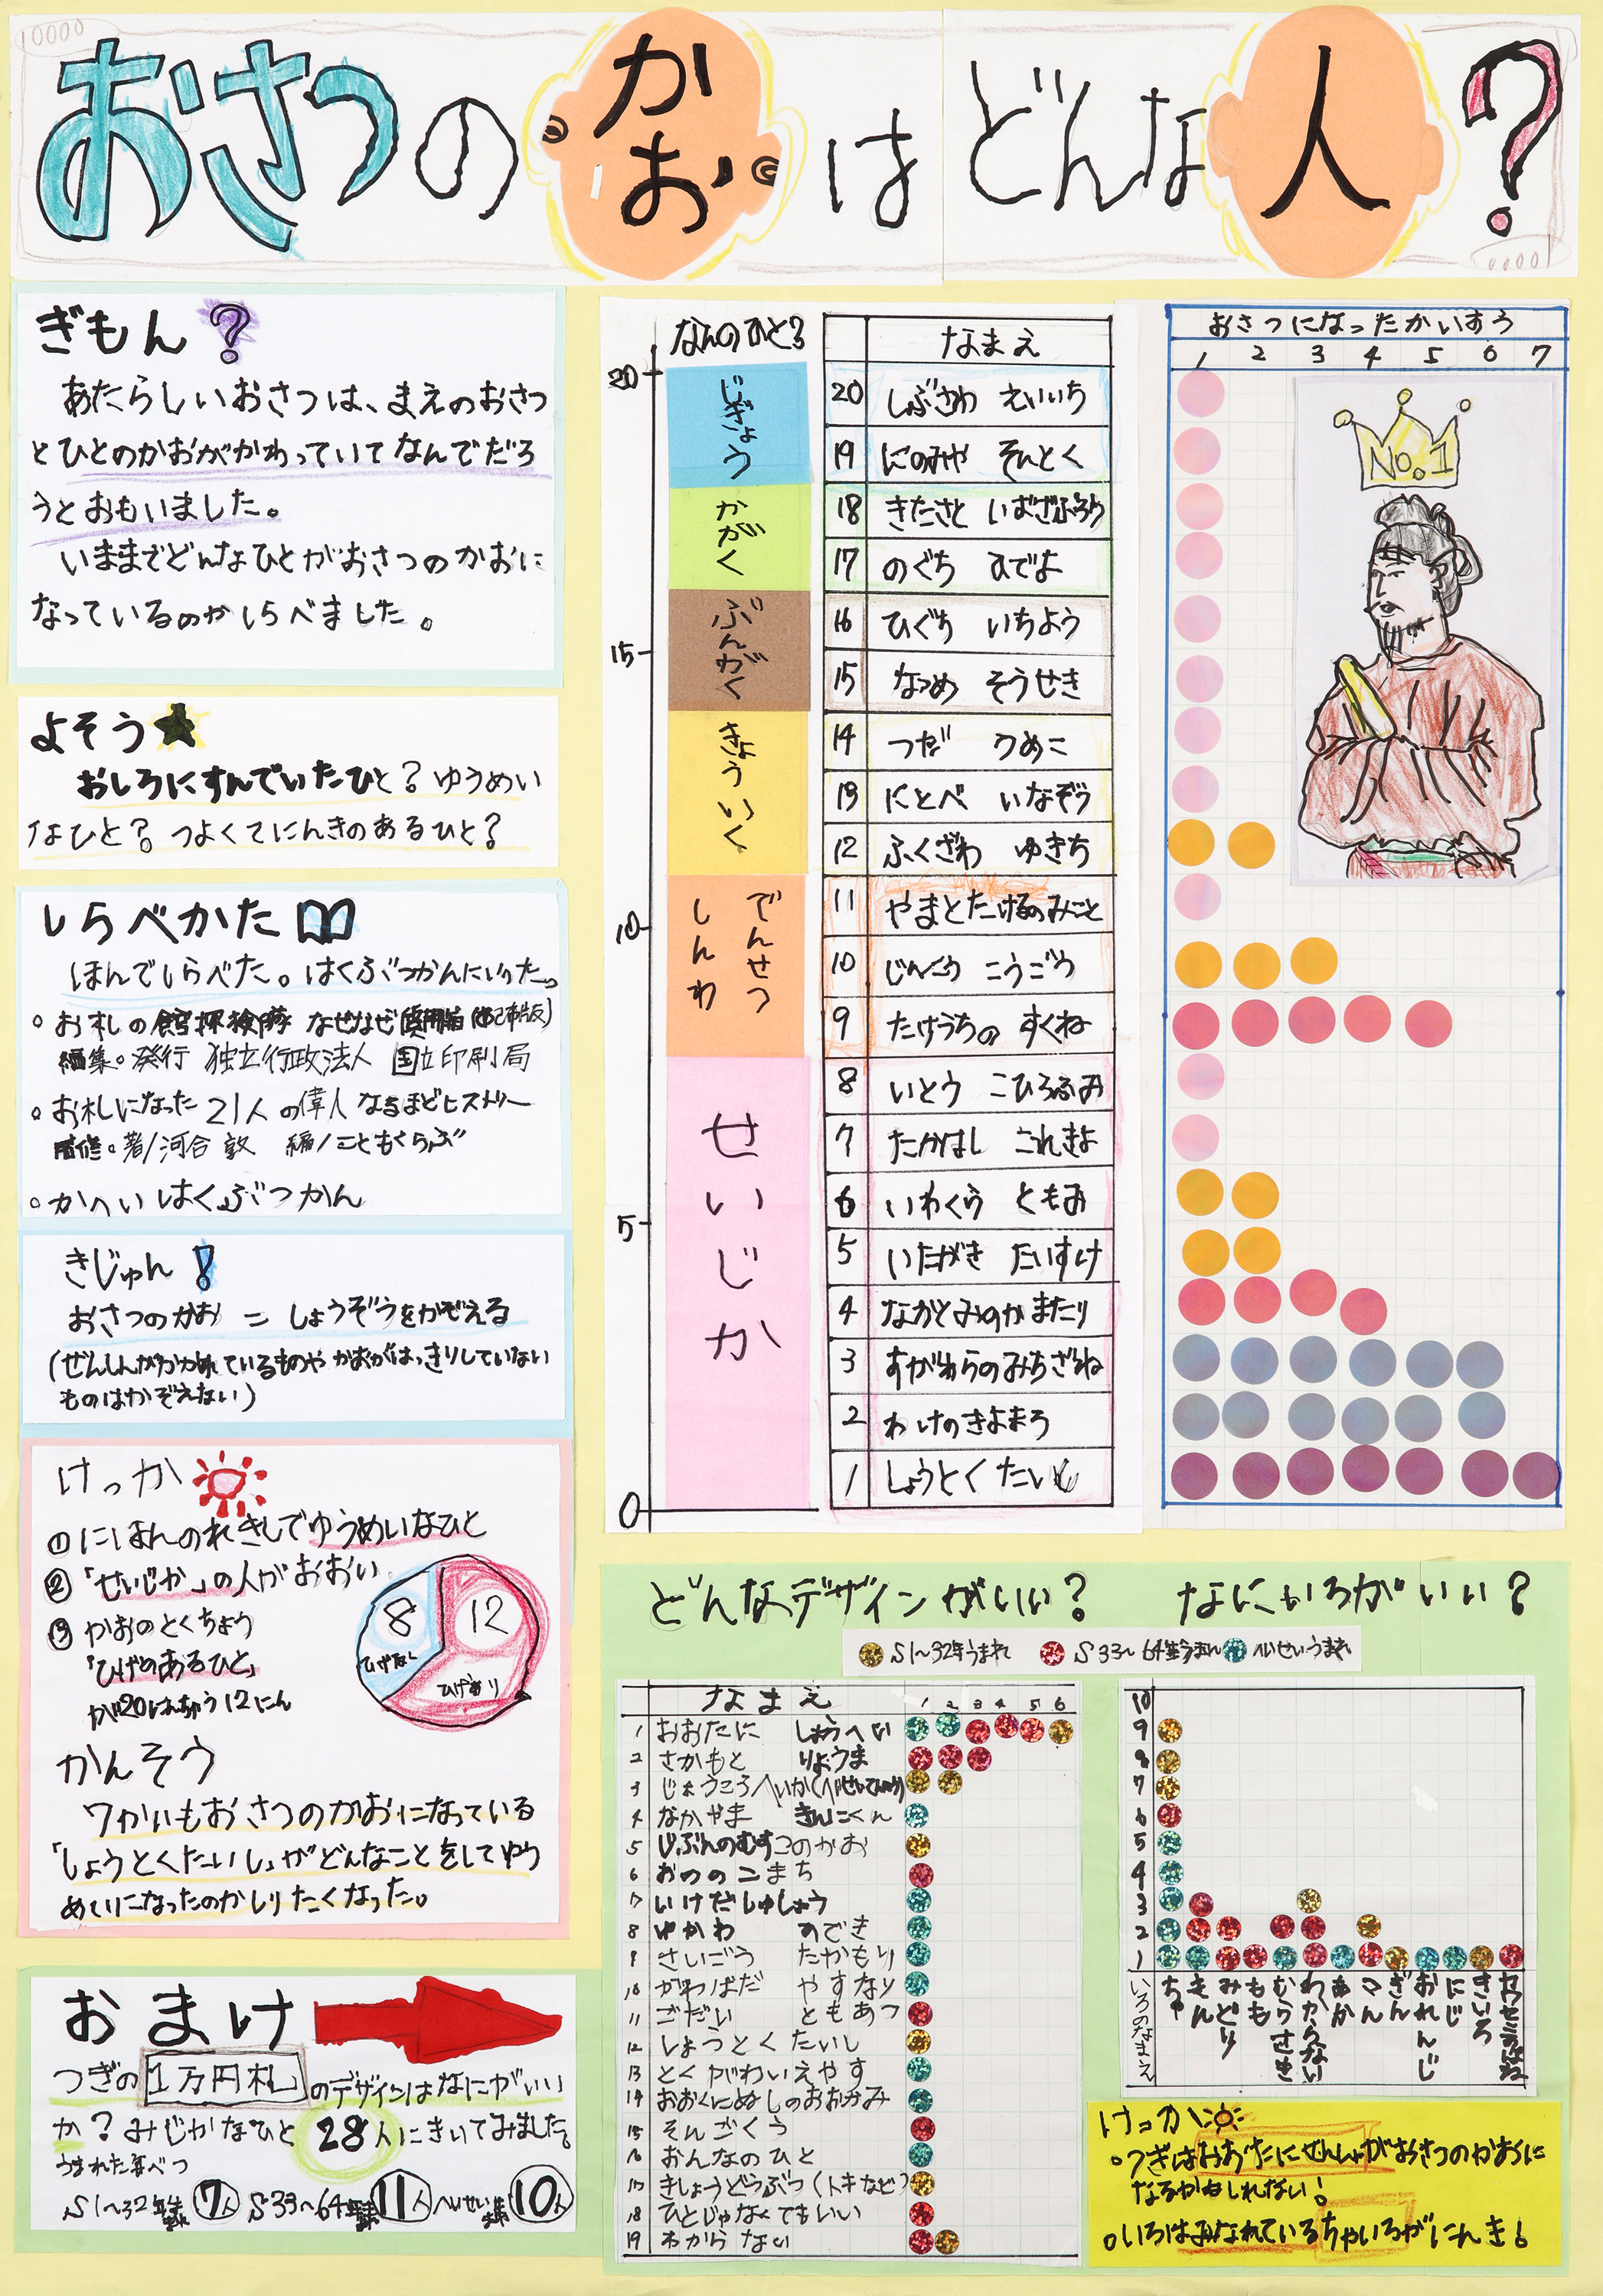 10000
おさつのかおはどんな人?
0000
ぎもん?
あたらしいおさつは、まえのおさつ
とひとのかおがかわっていてなんでだろ
うとおもいました。
いままでどんなひとがおさつのかおに
なっているのかしらべました。
よそう
おしろにすんでいたひと?ゆうめい
なひと?つよくてにんきのあるひと?
しらべかた
ほんでしらべた。はくぶつかんにいった。
お札の館探検隊 なぜなぜ
編集。発行 独立行政法人 国立印刷局
お札になった21人の偉人 なるほどヒストリー
監修。著/河合 敦 編/こどもくらぶ
かへいはくぶつかん
きじゅん!
おさつのかお = しょうぞうをかぞえる
(ぜんしんがかかれているものやかおがはっきりしていない
ものはかぞえない)
けっか
①にほんのれきしでゆうめいなひと
②「せいじか」の人がおおい
③かおのとくちょう
「ひげのあるひと」
が20にんちゅう12にん
8
ひげなし
12
ひげあり
かんそう
7かいもおさつのかおになっている
「しょうとくたいし」がどんなことをしてゆう
めいになったのかしりたくなった。
おまけ
つぎの1万円札のデザインはなにがいい
か?みじかなひと28人にきいてみました。
うまれた年べつ
S1~32年 7人 S33~64年 11人 へいせい 10人
なんのひと?
20
15
10
5
0
じぎょう
かがく
ぶんがく
きょういく
でんせつ
しんわ
せいじか
なまえ
20 しぶさわ えいいち
19 にのみや そんとく
18 きたさと しばざぶろう
17 のぐち ひでよ
16 ひぐち いちよう
15 なつめ そうせき
14 つだ うめこ
13 にとべ いなぞう
12 ふくざわ ゆきち
11 やまとたけるのみこと
10 じんぐう こうごう
9 たけうちの すくね
8 いとう こひろふみ
7 たかはし これきよ
6 いわくら ともみ
5 いたがき たいすけ
4 なかとみのかまたり
3 すがわらのみちざね
2 わけのきよまろ
1 しょうとくたいし
おさつになったかいすう
1 2 3 4 5 6 7
No.1
どんなデザインがいい? なにいろがいい?
S1~32年うまれ S33~64年うまれ へいせいうまれ
なまえ 1 2 3 4 5 6
1 おおたに しょうへい
2 さかもと りょうま
3 じょうこうへいか(へいせいてんのう)
4 なかやま きんにくん
5 じぶんのむすこのかお
6 おののこまち
7 いけだしゅしょう
8 ゆかわ ひでき
9 さいごう たかもり
10 かわばた やすなり
11 ごだい ともあつ
12 しょうとくたいし
13 とくがわいえやす
14 おおくにぬしのおおかみ
15 そんごくう
16 おんなのひと
17 きしょうどうぶつ(トキなど)
18 ひとじゃなくてもいい
19 わからない
10
9
8
7
6
5
4
3
2
1
いろのなまえ
ちゃ
きん
みどり
もも
むらさき
わからない
あか
こん
ぎん
おれんじ
にじ
きいろ
けっか
つぎはおおたにせんしゅがおさつのかおに
なるかもしれない!
いろはみなれているちゃいろがにんき!